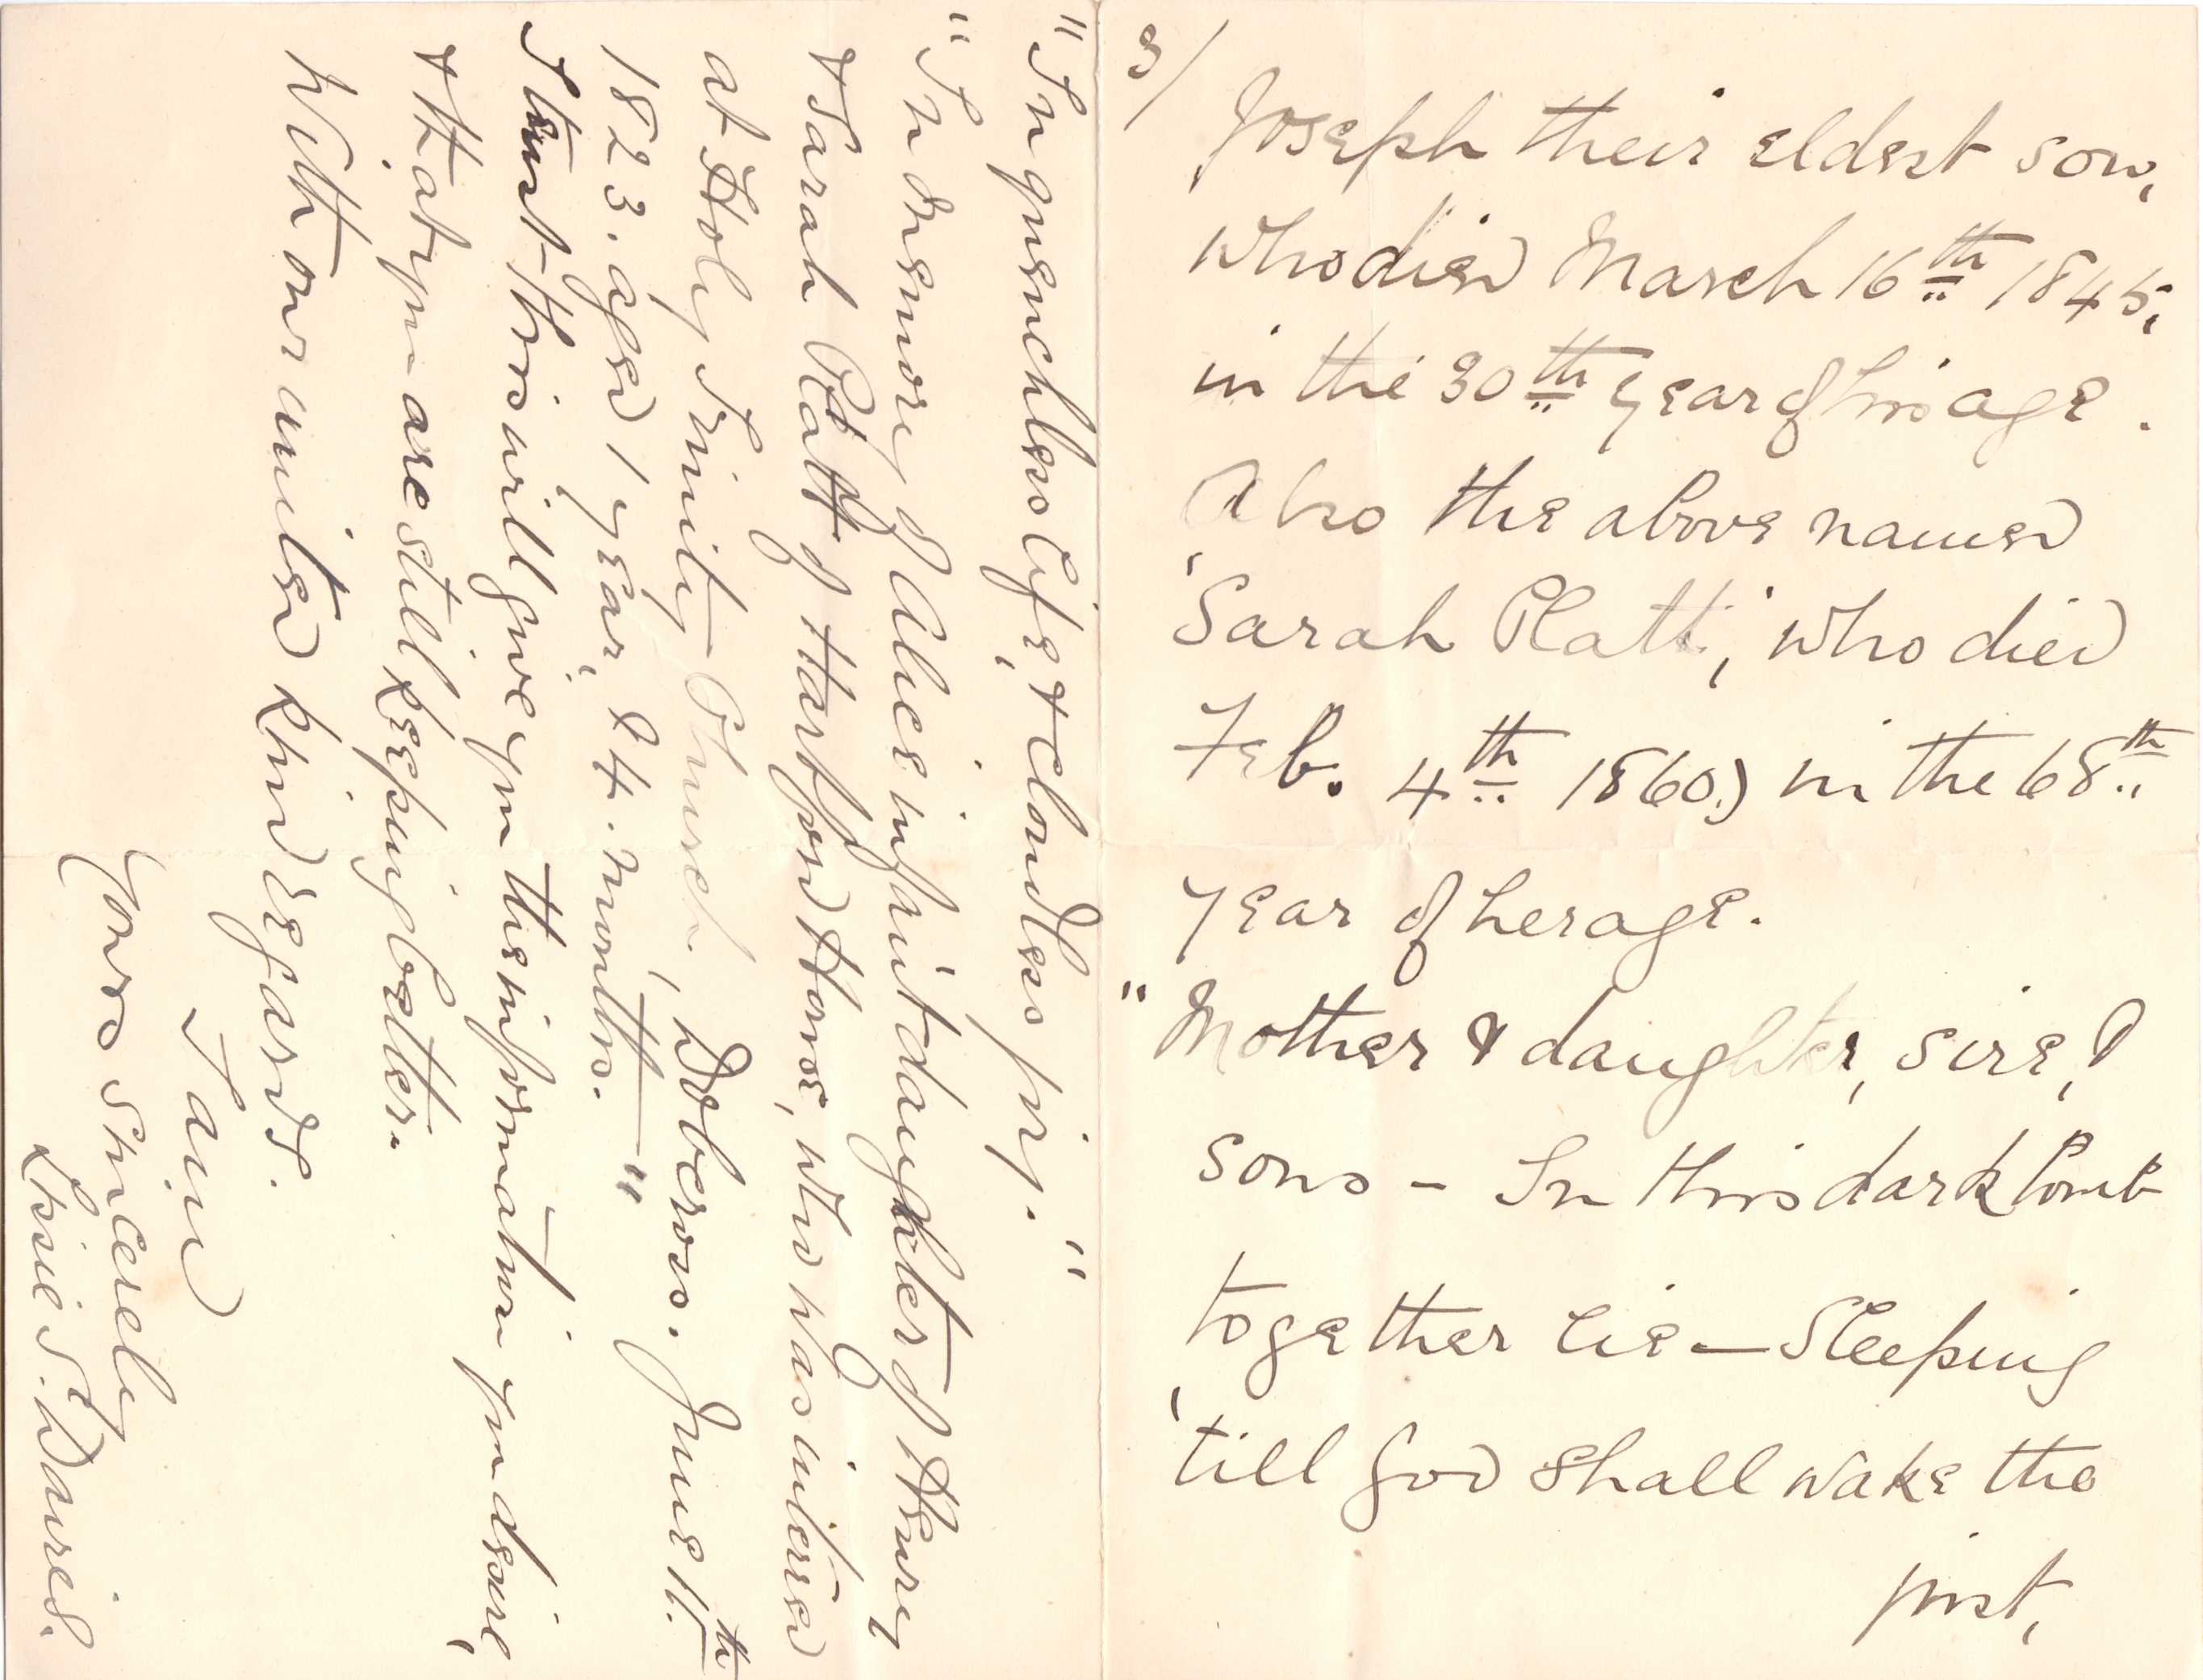 3/
Joseph their eldest son,
who died March 16th 1845,
in the 30th year of his age.
Also the above named
Sarah Platt, who died
Feb. 4th 1860, in the 68th
year of her age.
"Mother & daughter, sire, &
sons - In this dark tomb
together lie — Sleeping
'till God shall wake the
just,
"In quenchless life, & cloudless joy."
"In memory of Alice infant daughter of Henry
& Sarah Platt of Hartford House, who was interred
at Holy Trinity Church, Dobcross. June 11th
1823. aged 1 year, & 4 months."
I trust this will give you the information you desire,
& that you are still keeping better.
With our united kind regards.
I am
Yours sincerely
Lizzie S. Davies.